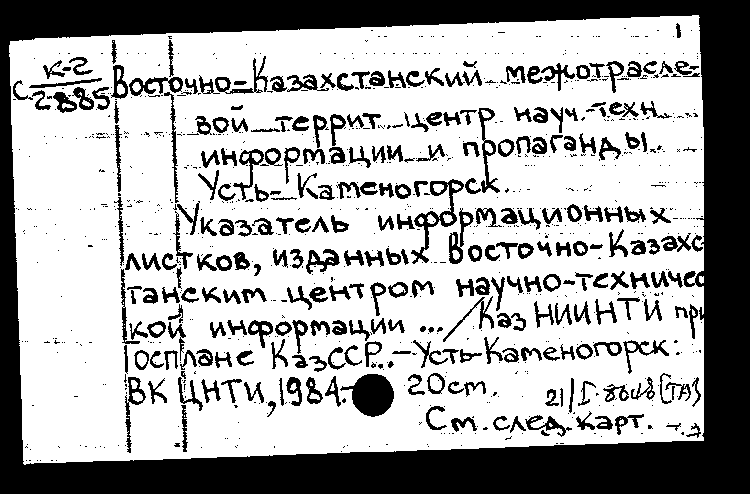 1
К-2
С 2885
Восточно-Казахстанский межотрасле-
вой террит. центр науч.-техн.
информации и пропаганды.
Усть-Каменогорск.
Указатель информационных
листков, изданных Восточно-Казахс
танским центром научно-техничес
кой информации ... / Каз НИИНТИ при
Госплане КазССР... - Усть-Каменогорск:
ВК ЦНТИ, 1984.- 20cm.
См. след. карт.